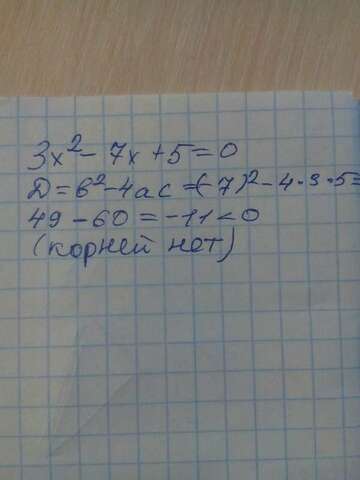 3x² - 7x + 5 = 0
D = в² - 4ас = (-7)² - 4·3·5 =
49 - 60 = -11 < 0
(корней нет)